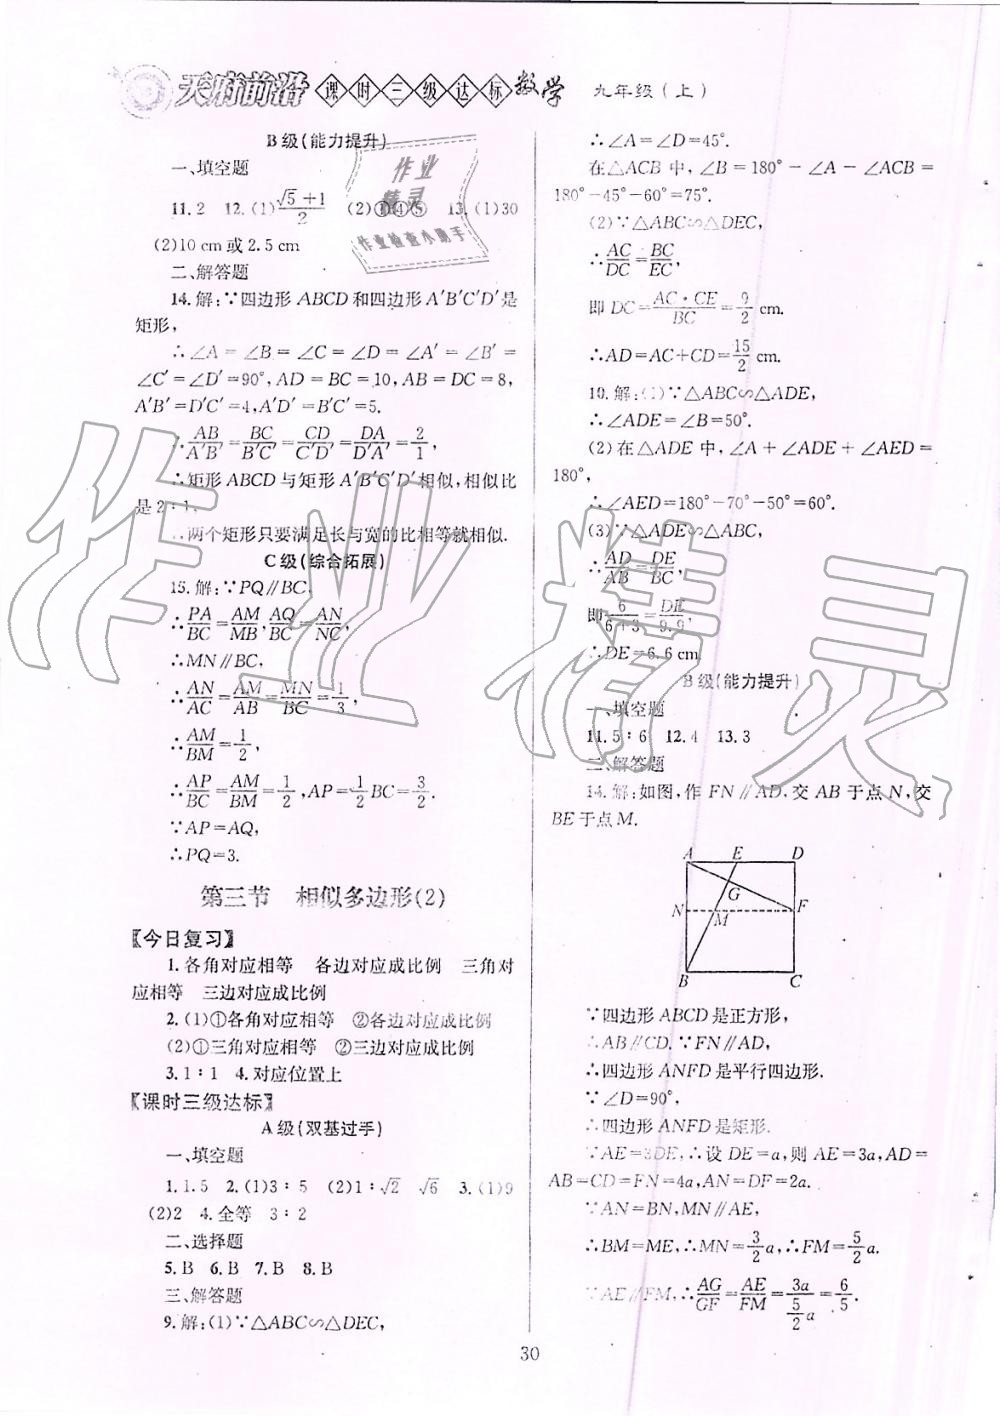 天府前沿 课时三级达标 数学 九年级(上)
B级(能力提升)
一、填空题
11.2 12.(1)$\frac{\sqrt{5}+1}{2}$ (2)①④⑤ 13.(1)30
(2)10 cm或2.5 cm
二、解答题
14.解:∵四边形ABCD和四边形A′B′C′D′是
矩形,
∴∠A=∠B=∠C=∠D=∠A′=∠B′=
∠C′=∠D′=90°,AD=BC=10,AB=DC=8,
A′B′=D′C′=4,A′D′=B′C′=5.
∴$\frac{AB}{A'B'}=\frac{BC}{B'C'}=\frac{CD}{C'D'}=\frac{DA}{D'A'}=\frac{2}{1}$
∴矩形ABCD与矩形A′B′C′D′相似,相似比
是2∶1.
∴两个矩形只要满足长与宽的比相等就相似.
C级(综合拓展)
15.解:∵PQ∥BC,
∴$\frac{PA}{BC}=\frac{AM}{MB}$,$\frac{AQ}{BC}=\frac{AN}{NC}$,
∴MN∥BC,
∴$\frac{AN}{AC}=\frac{AM}{AB}=\frac{MN}{BC}=\frac{1}{3}$,
∴$\frac{AM}{BM}=\frac{1}{2}$,
∴$\frac{AP}{BC}=\frac{AM}{BM}=\frac{1}{2}$,AP=$\frac{1}{2}$BC=$\frac{3}{2}$
∵AP=AQ,
∴PQ=3.
第三节 相似多边形(2)
【今日复习】
1.各角对应相等 各边对应成比例 三角对
应相等 三边对应成比例
2.(1)①各角对应相等 ②各边对应成比例
(2)①三角对应相等 ②三边对应成比例
3.1∶1 4.对应位置上
【课时三级达标】
A级(双基过手)
一、填空题
1.1.5 2.(1)3∶5 (2)1∶√2 √6 3.(1)9
(2)2 4.全等 3∶2
二、选择题
5.B 6.B 7.B 8.B
三、解答题
9.解:(1)∵△ABC∽△DEC,
∴∠A=∠D=45°.
在△ACB中,∠B=180°-∠A-∠ACB=
180°-45°-60°=75°.
(2)∵△ABC∽△DEC,
∴$\frac{AC}{DC}=\frac{BC}{EC}$,
即DC=$\frac{AC·CE}{BC}=\frac{9}{2}$ cm.
∴AD=AC+CD=$\frac{15}{2}$ cm.
10.解:(1)∵△ABC∽△ADE,
∴∠ADE=∠B=50°.
(2)在△ADE中,∠A+∠ADE+∠AED=
180°,
∴∠AED=180°-70°-50°=60°.
(3)∵△ADE∽△ABC,
∴$\frac{AD}{AB}=\frac{DE}{BC}$,
即$\frac{6}{6+3}=\frac{DE}{9.9}$,
∴DE=6.6 cm
B级(能力提升)
一、填空题
11.5∶6 12.4 13.3
二、解答题
14.解:如图,作FN∥AD,交AB于点N,交
BE于点M.
A E D
G
N M F
B C
∵四边形ABCD是正方形,
∴AB∥CD.∵FN∥AD,
∴四边形ANFD是平行四边形.
∵∠D=90°,
∴四边形ANFD是矩形.
∵AE=3DE,∴设DE=a,则AE=3a,AD=
AB=CD=FN=4a,AN=DF=2a.
∵AN=BN,MN∥AE,
∴BM=ME,∴MN=$\frac{3}{2}$a,∴FM=$\frac{5}{2}$a.
∵AE∥FM,∴$\frac{AG}{GF}=\frac{AE}{FM}=\frac{3a}{\frac{5}{2}a}=\frac{6}{5}$.
30
作业
精灵
作业检查小助手
作业精灵